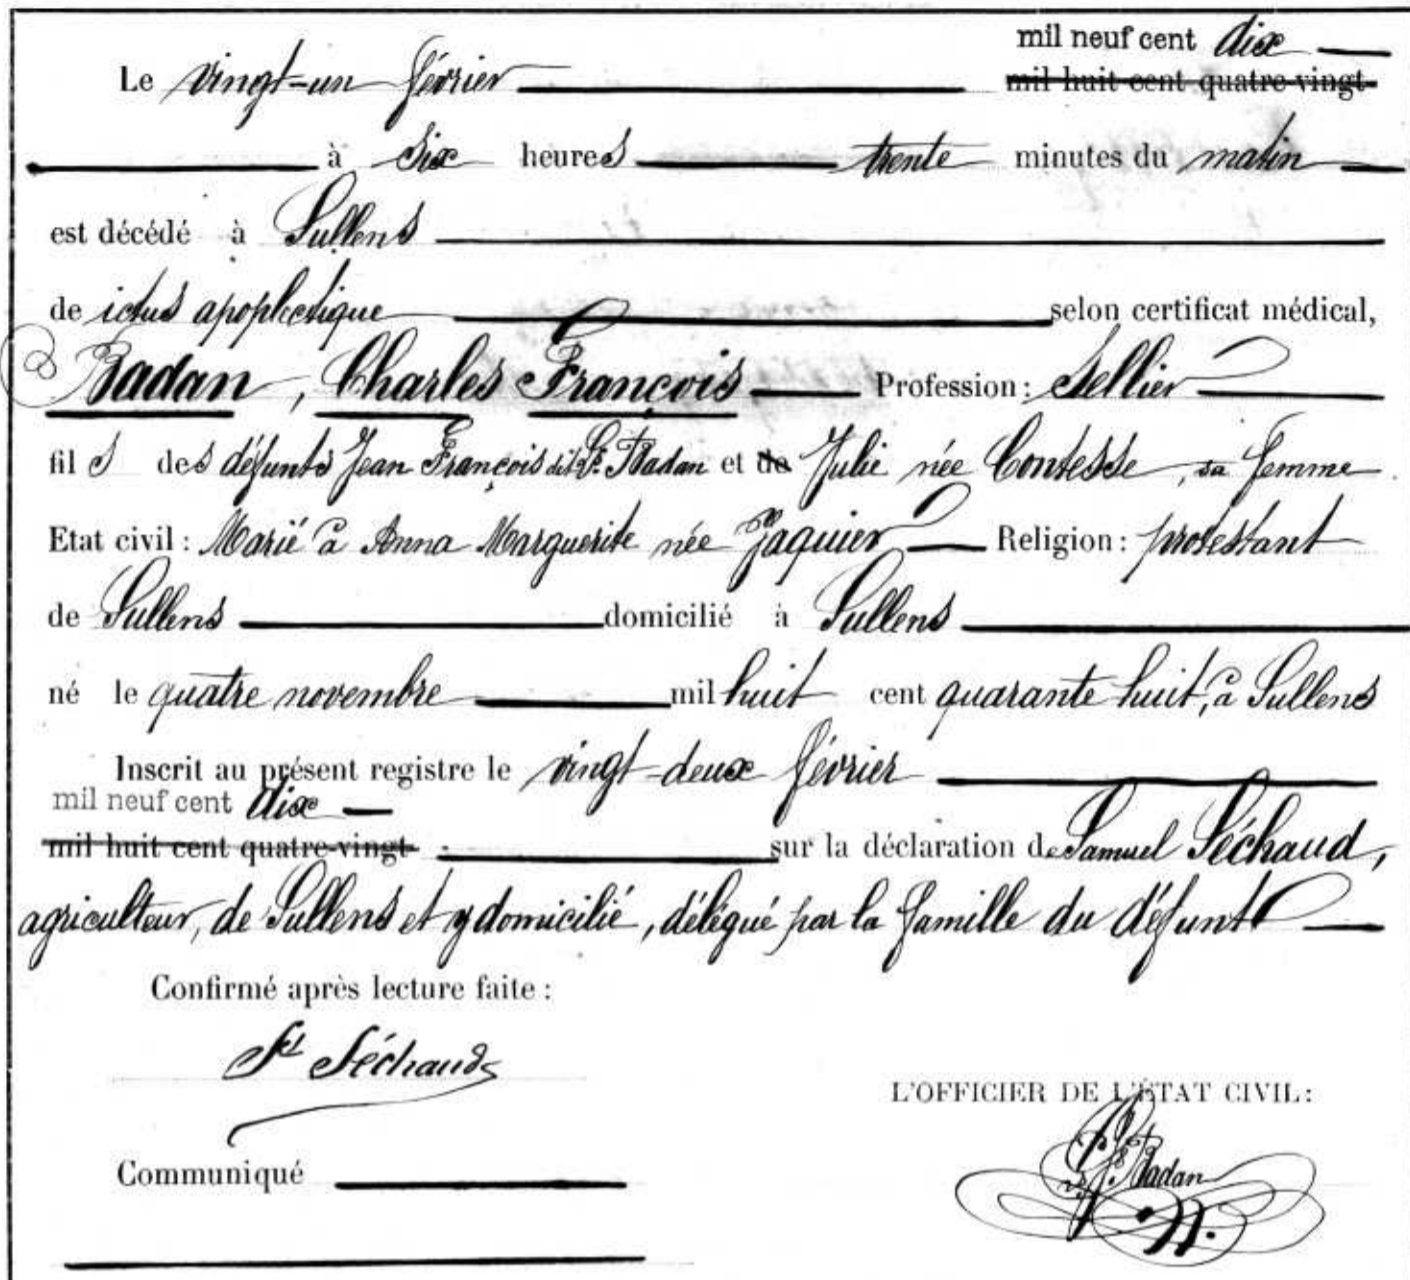 mil neuf cent dix
Le vingt-un février mil huit cent quatre-vingt
à six heures trente minutes du matin
est décédé à Sullens
de ictus apoplectique selon certificat médical,
Badan, Charles François Profession : Sellier
fils des défunts Jean François dit Badan et de Julie née Contesse, sa femme
Etat civil : Marié à Anna Marguerite née Jaquier Religion : protestant
de Sullens domicilié à Sullens
né le quatre novembre mil huit cent quarante huit, à Sullens
Inscrit au présent registre le vingt-deux février
mil neuf cent dix
mil huit cent quatre-vingt sur la déclaration de Samuel Séchaud,
agriculteur, de Sullens et y domicilié, délégué par la famille du défunt
Confirmé après lecture faite :
Sl Séchaud
L'OFFICIER DE L'ÉTAT CIVIL :
Communiqué
Badan